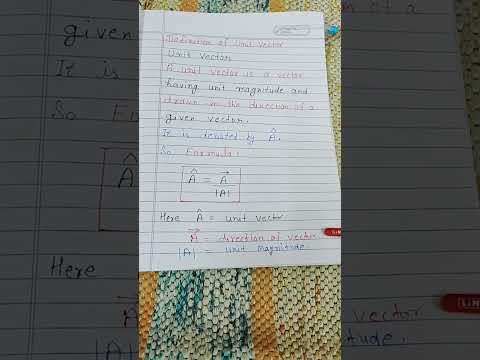 Defination of Unit Vector
Unit Vector
A unit vector is a vector
having unit magnitude and
drawn in the direction of a
given vector.
It is denoted by Â.
So Formula:
Â = A⃗ / |A|
Here Â = unit vector
A⃗ = direction of vector
|A| = unit Magnitude.
given
It is
So Fo
Â
Here
A⃗
|A|
of a
vector
itude.